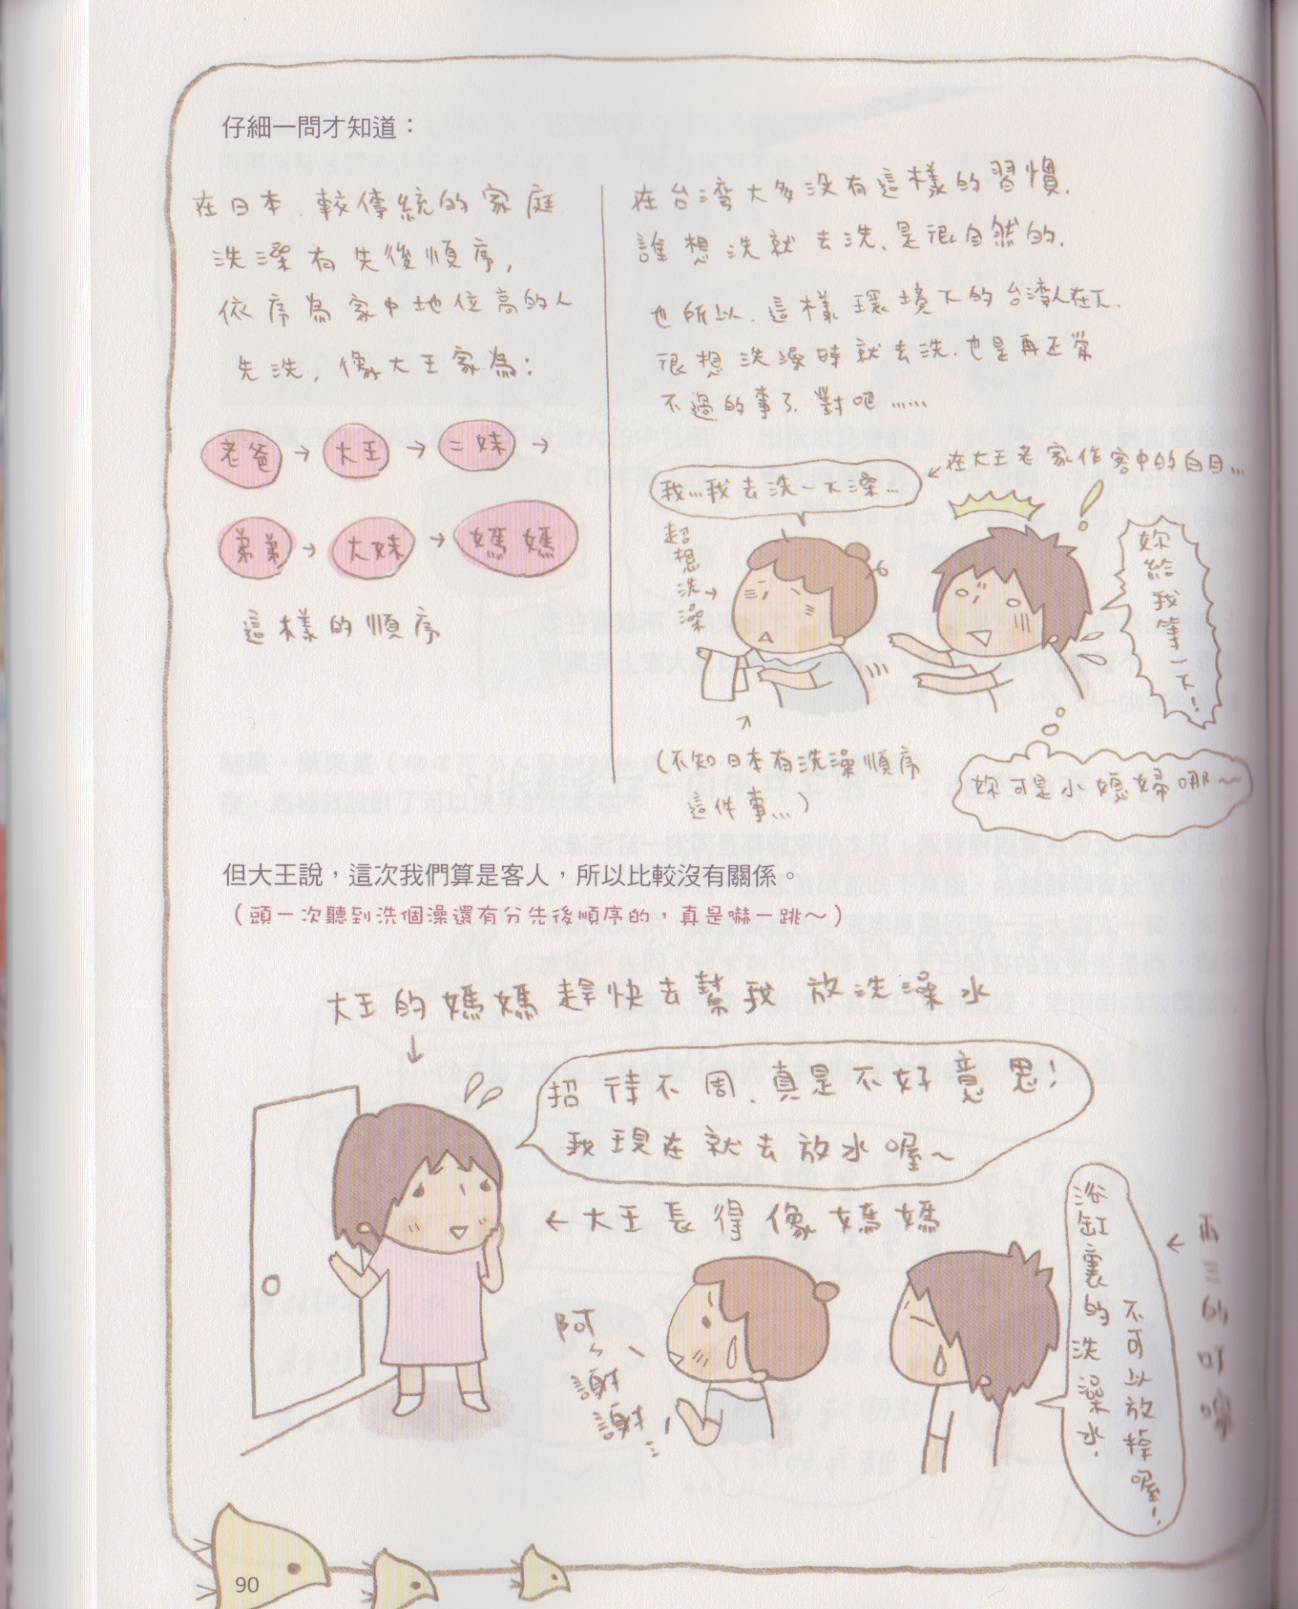 仔細一問才知道：
在日本.較傳統的家庭
洗澡有先後順序,
依序為家中地位高的人
先洗,像大王家為:
老爸→大王→二妹→
弟弟→大妹→媽媽
這樣的順序
在台灣大多沒有這樣的習慣.
誰想洗就去洗.是很自然的.
也所以.這樣環境下的台灣人在下.
很想洗澡時就去洗.也是再正常
不過的事了.對吧……
←在大王老家作客中的白目…
我…我去洗一下澡…
超想洗澡→
妳給我等一下!
妳可是小媳婦哪~
(不知日本有洗澡順序
這件事…)
但大王說，這次我們算是客人，所以比較沒有關係。
（頭一次聽到洗個澡還有分先後順序的，真是嚇一跳～）
大王的媽媽趕快去幫我放洗澡水
招待不周.真是不好意思!
我現在就去放水喔~
←大王長得像媽媽
阿~、
謝謝…
浴缸裏的洗澡水.
不可以放掉喔!
←再三的叮嚀
90